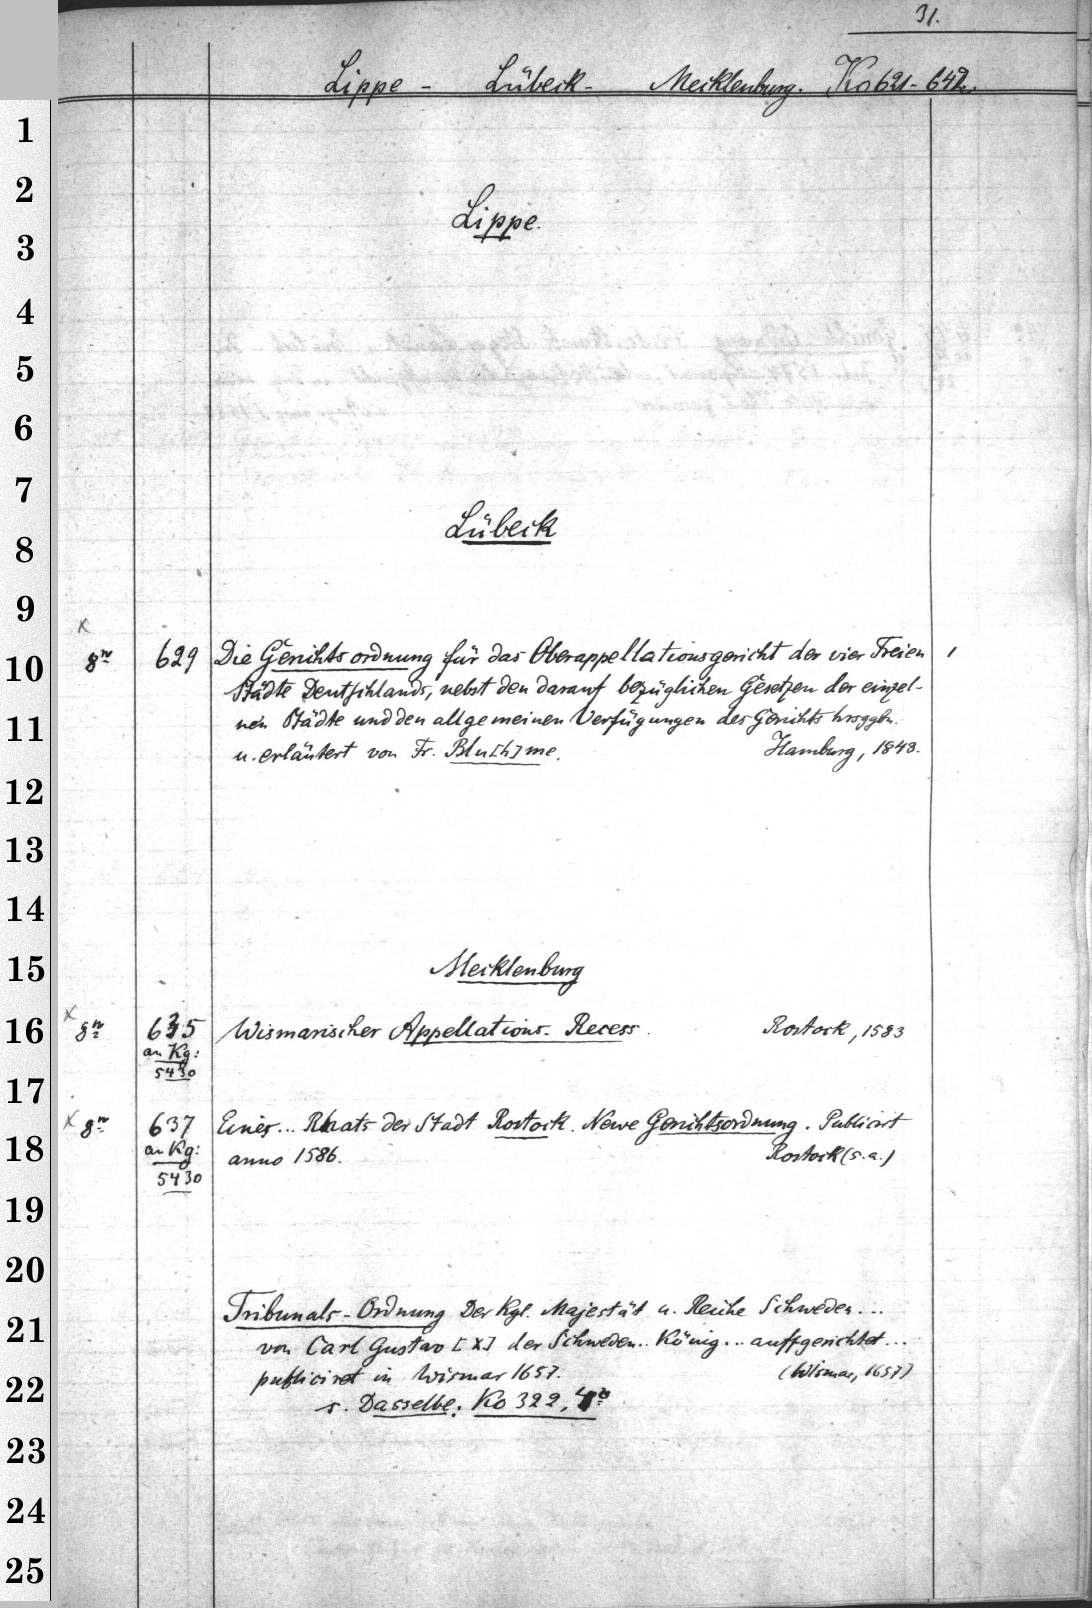 31.
Lippe - Lübeck - Mecklenburg. Ko 621-642.
1
2
Lippe.
3
4
5
6
7
Lübeck
8
9
x
10 8° 629 Die Gerichtsordnung für das Oberappellationsgericht der vier Freien
Städte Deutschlands, nebst den darauf bezüglichen Gesetzen der einzel-
11 nen Städte und den allgemeinen Verfügungen des Gerichts hrsggbn.
u. erläutert von Fr. Blu[h]me. Hamburg, 1843.
12
13
14
15 Mecklenburg
x
16 8° 635 Wismarischer Appellations-Recess. Rostock, 1583
an Kg:
5430
17
x 8° 637 Eines... Rhats der Stadt Rostock. Newe Gerichtsordnung. Publicirt
18 an Kg: anno 1586. Rostock (s.a.)
5430
19
20
Tribunals-Ordnung Der Kgl. Majestät u. Reiche Schweden...
21 von Carl Gustav [X] der Schweden.. König... auffgerichtet...
publiciret in Wismar 1657. (Wismar, 1657)
22 s. Dasselbe: Ko 322, 4°
23
24
25